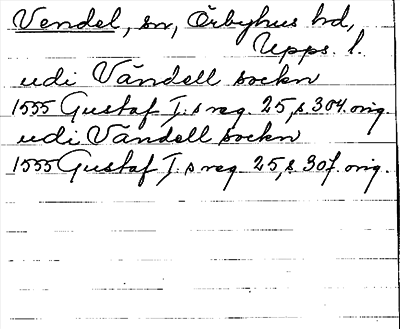 Vendel, sn, Örbyhus hd,
Upps. l.
udi Vändell sockn
1555 Gustaf I.s reg. 25, s. 304. orig.
udi Vändell sockn
1555 Gustaf I.s reg. 25, s. 307. orig.